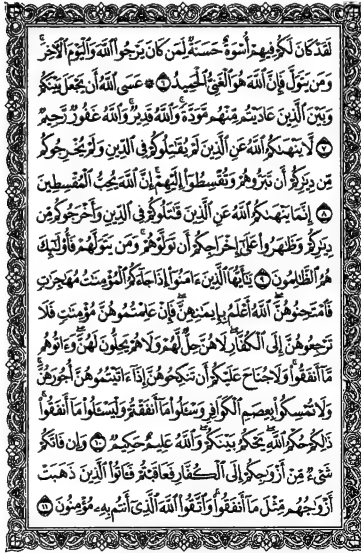 لَقَدْ كَانَ لَكُمْ فِيهِمْ أُسْوَةٌ حَسَنَةٌ لِّمَن كَانَ يَرْجُوا۟ ٱللَّهَ وَٱلْيَوْمَ ٱلْـَٔاخِرَ ۚ
وَمَن يَتَوَلَّ فَإِنَّ ٱللَّهَ هُوَ ٱلْغَنِىُّ ٱلْحَمِيدُ ٦ ۞ عَسَى ٱللَّهُ أَن يَجْعَلَ بَيْنَكُمْ
وَبَيْنَ ٱلَّذِينَ عَادَيْتُم مِّنْهُم مَّوَدَّةً ۚ وَٱللَّهُ قَدِيرٌ ۚ وَٱللَّهُ غَفُورٌ رَّحِيمٌ
٧ لَّا يَنْهَىٰكُمُ ٱللَّهُ عَنِ ٱلَّذِينَ لَمْ يُقَـٰتِلُوكُمْ فِى ٱلدِّينِ وَلَمْ يُخْرِجُوكُم
مِّن دِيَـٰرِكُمْ أَن تَبَرُّوهُمْ وَتُقْسِطُوٓا۟ إِلَيْهِمْ ۚ إِنَّ ٱللَّهَ يُحِبُّ ٱلْمُقْسِطِينَ
٨ إِنَّمَا يَنْهَىٰكُمُ ٱللَّهُ عَنِ ٱلَّذِينَ قَـٰتَلُوكُمْ فِى ٱلدِّينِ وَأَخْرَجُوكُم مِّن
دِيَـٰرِكُمْ وَظَـٰهَرُوا۟ عَلَىٰٓ إِخْرَاجِكُمْ أَن تَوَلَّوْهُمْ ۚ وَمَن يَتَوَلَّهُمْ فَأُو۟لَـٰٓئِكَ
هُمُ ٱلظَّـٰلِمُونَ ٩ يَـٰٓأَيُّهَا ٱلَّذِينَ ءَامَنُوٓا۟ إِذَا جَآءَكُمُ ٱلْمُؤْمِنَـٰتُ مُهَـٰجِرَٰتٍ
فَٱمْتَحِنُوهُنَّ ۖ ٱللَّهُ أَعْلَمُ بِإِيمَـٰنِهِنَّ ۖ فَإِنْ عَلِمْتُمُوهُنَّ مُؤْمِنَـٰتٍ فَلَا
تَرْجِعُوهُنَّ إِلَى ٱلْكُفَّارِ ۖ لَا هُنَّ حِلٌّ لَّهُمْ وَلَا هُمْ يَحِلُّونَ لَهُنَّ ۖ وَءَاتُوهُم
مَّآ أَنفَقُوا۟ ۚ وَلَا جُنَاحَ عَلَيْكُمْ أَن تَنكِحُوهُنَّ إِذَآ ءَاتَيْتُمُوهُنَّ أُجُورَهُنَّ ۚ
وَلَا تُمْسِكُوا۟ بِعِصَمِ ٱلْكَوَافِرِ وَسْـَٔلُوا۟ مَآ أَنفَقْتُمْ وَلْيَسْـَٔلُوا۟ مَآ أَنفَقُوا۟ ۚ
ذَٰلِكُمْ حُكْمُ ٱللَّهِ ۖ يَحْكُمُ بَيْنَكُمْ ۚ وَٱللَّهُ عَلِيمٌ حَكِيمٌ ١٠ وَإِن فَاتَكُمْ
شَىْءٌ مِّنْ أَزْوَٰجِكُمْ إِلَى ٱلْكُفَّارِ فَعَاقَبْتُمْ فَـَٔاتُوا۟ ٱلَّذِينَ ذَهَبَتْ
أَزْوَٰجُهُم مِّثْلَ مَآ أَنفَقُوا۟ ۚ وَٱتَّقُوا۟ ٱللَّهَ ٱلَّذِىٓ أَنتُم بِهِۦ مُؤْمِنُونَ ١١